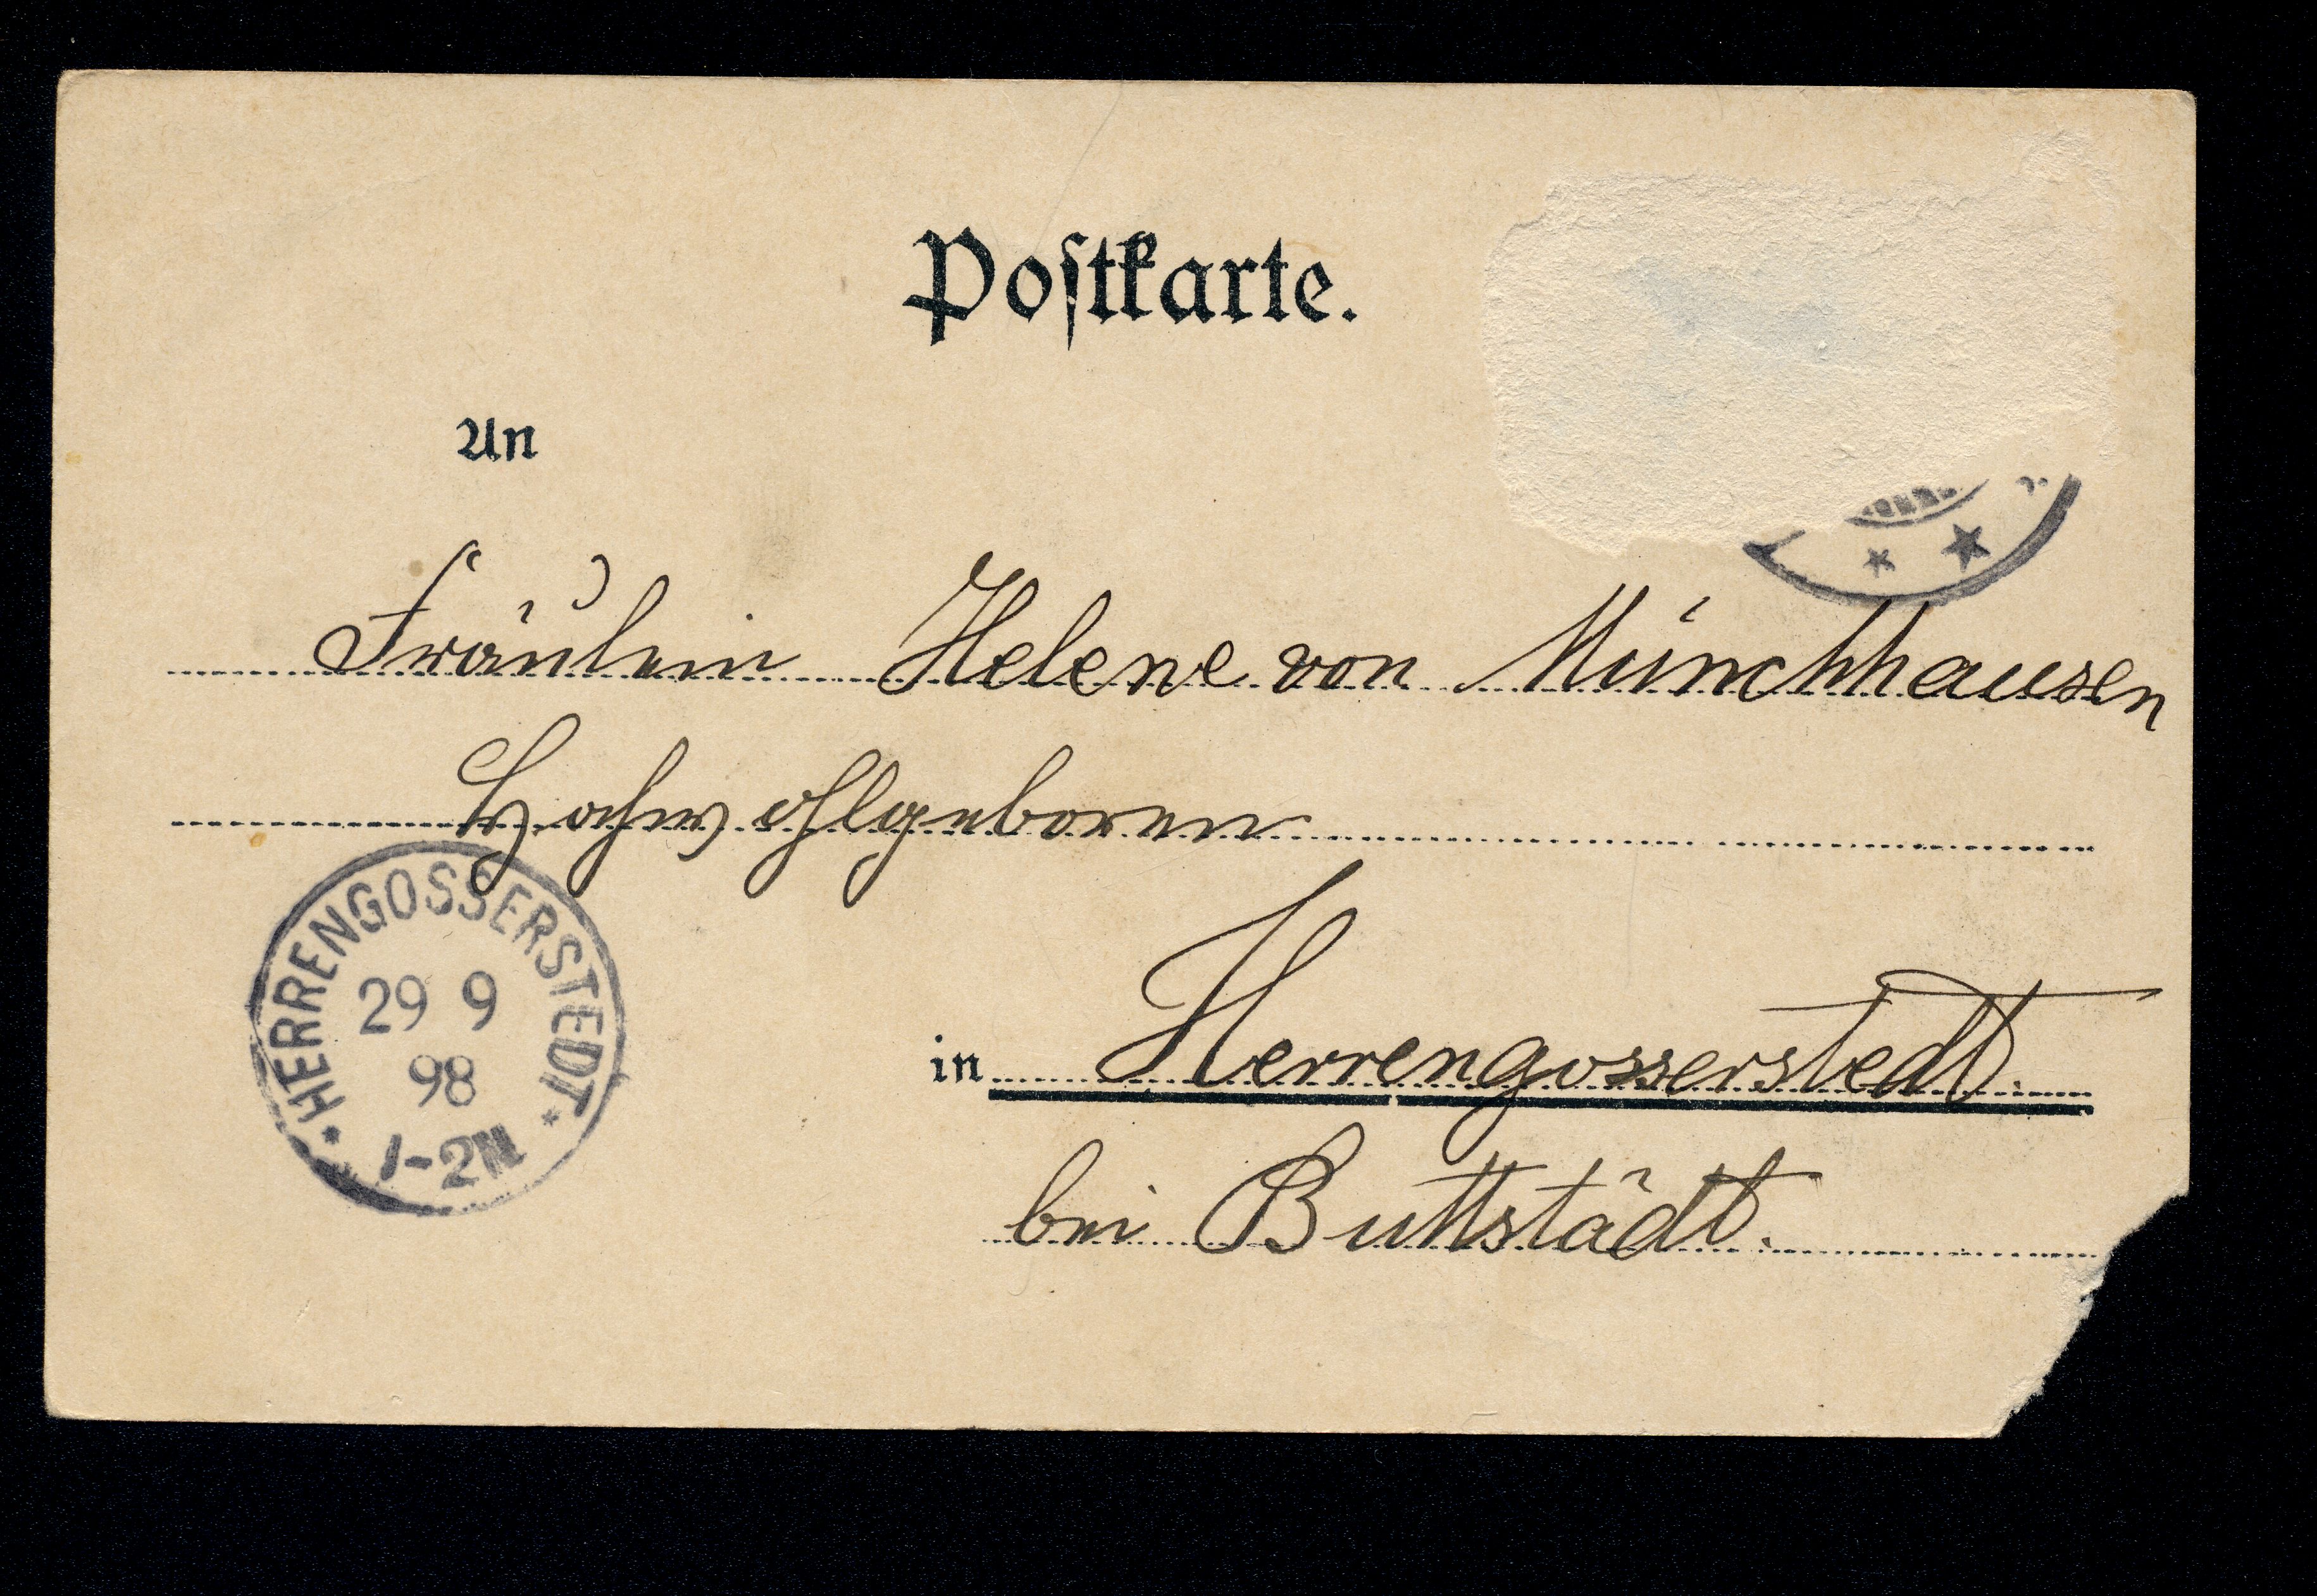 Postkarte.
An
Fräulein Helene von Münchhausen
Hochwohlgeboren
in Herrengosserstedt.
bei Buttstädt.
* HERRENGOSSERSTEDT *
29 9
98
1-2N